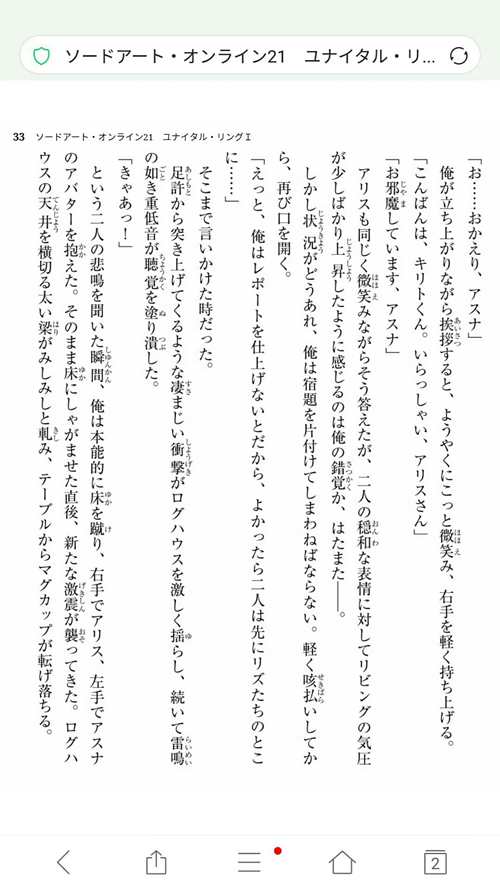 ソードアート・オンライン21　ユナイタル・リ...
33　ソードアート・オンライン21　ユナイタル・リングⅠ
「お……おかえり、アスナ」
俺が立ち上がりながら挨拶すると、ようやくにこっと微笑み、右手を軽く持ち上げる。
「こんばんは、キリトくん。いらっしゃい、アリスさん」
「お邪魔しています、アスナ」
アリスも同じく微笑みながらそう答えたが、二人の穏和な表情に対してリビングの気圧
が少しばかり上昇したように感じるのは俺の錯覚か、はたまた――。
しかし状況がどうあれ、俺は宿題を片付けてしまわねばならない。軽く咳払いしてか
ら、再び口を開く。
「えっと、俺はレポートを仕上げないとだから、よかったら二人は先にリズたちのとこ
に……」
そこまで言いかけた時だった。
足許から突き上げてくるような凄まじい衝撃がログハウスを激しく揺らし、続いて雷鳴
の如き重低音が聴覚を塗り潰した。
「きゃあっ！」
という二人の悲鳴を聞いた瞬間、俺は本能的に床を蹴り、右手でアリス、左手でアスナ
のアバターを抱えた。そのまま床にしゃがませた直後、新たな激震が襲ってきた。ログハ
ウスの天井を横切る太い梁がみしみしと軋み、テーブルからマグカップが転げ落ちる。
2